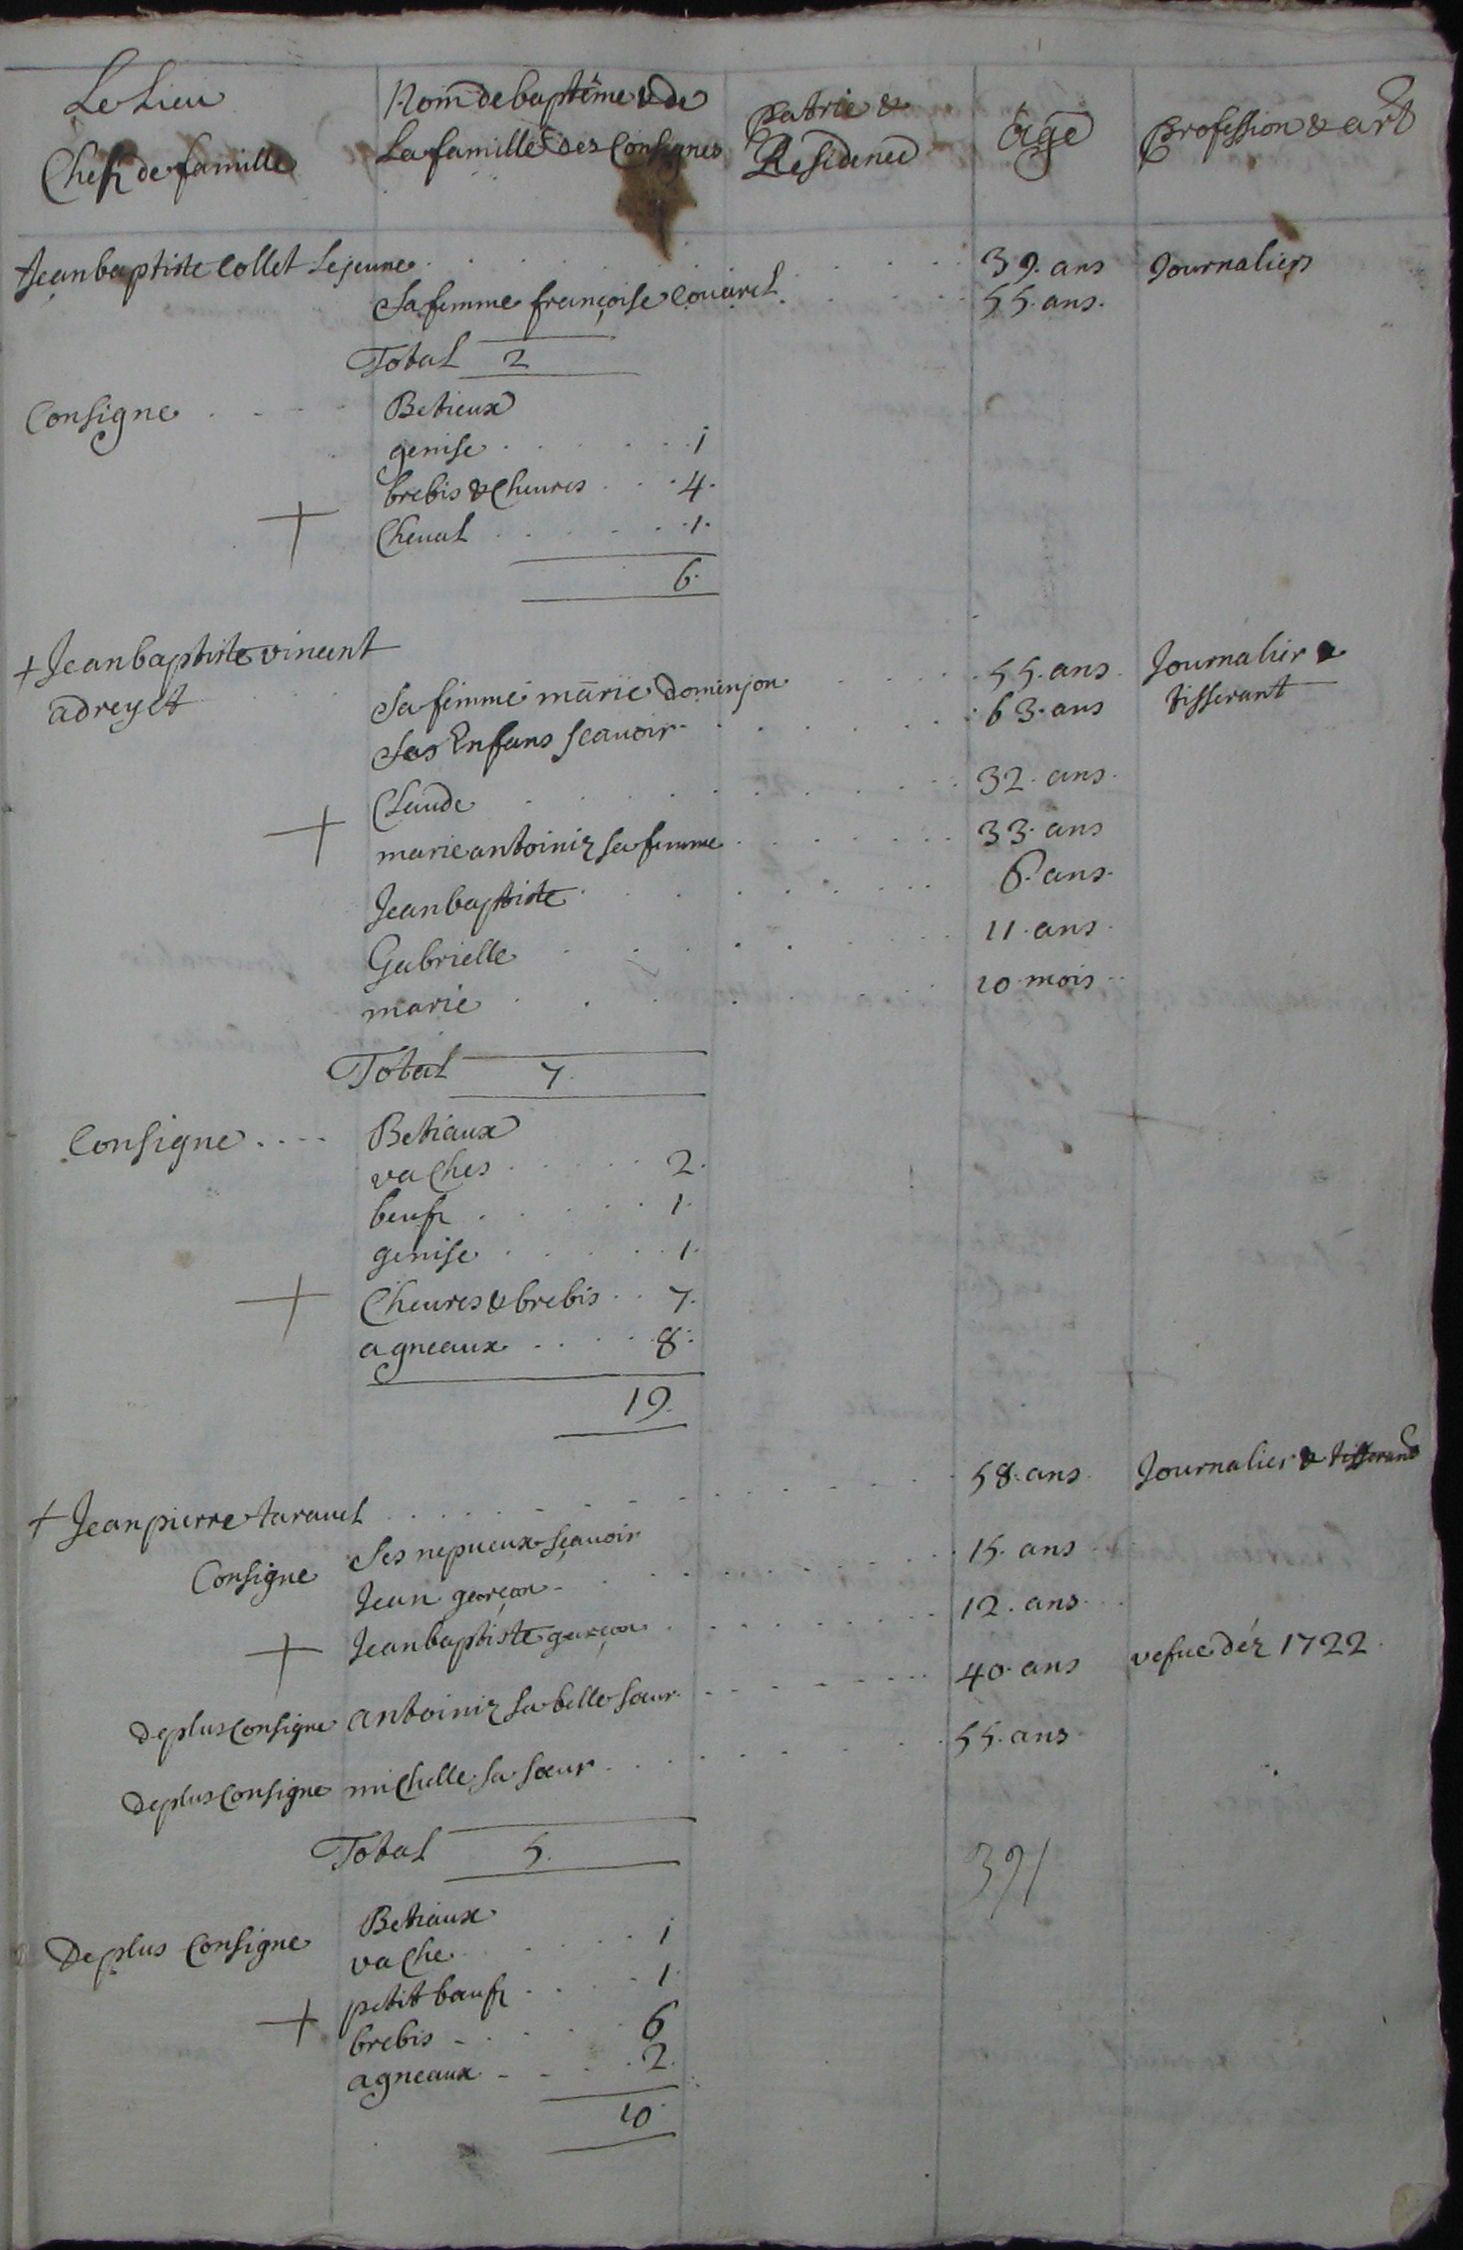 Le Lieu
Chefz de famille
Nom de baptême & de
La famille des Consignes
patrie &
Residence
âge
profession & art
Jean baptiste Collet Lejeune . . . . . . . . 39. ans Journalier
Sa femme françoise Couavel . . . 55. ans.
Total 2
Consigne . . . Betieux
genise . . . . . . 1
brebis & Cheures . . . 4.
Cheual . . . . . 1.
6.
+ Jean baptiste vincent
adreyet . . . . . . . 55. ans Journalier &
tisserant
Sa femme marie Dominjon . . . 63. ans
Ses Enfans scauoir
Claude . . . . . . . 32. ans.
marie antoinis sa femme . . . . . 33. ans
Jean baptiste . . . . . . 6. ans.
Gabrielle . . . . . . 11. ans.
marie . . . . . . 10 mois
Total 7.
Consigne . . . . Betiaux
vaches . . . . . 2.
beufz . . . . . 1.
genise . . . . . 1.
Cheures & brebis . . 7.
agneaux . . . . 8.
19.
+ Jean pierre taravel . . . . . . . . 58. ans Journalier & tisserand
Consigne Ses nepueux sçauoir
Jean garçon . . . . . . . 15. ans
Jean baptiste garçon . . . . . . 12. ans
De plus Consigne antoinis sa belle sœur . . . . . 40. ans vefue déz 1722.
De plus Consigne michelle sa sœur . . . . . 55. ans
Total 5.
391
De plus Consigne Betiaux
vache . . . . . 1
petit bœufz . . . . 1.
brebis . . . . . 6
agneaux . . . . 2.
10.